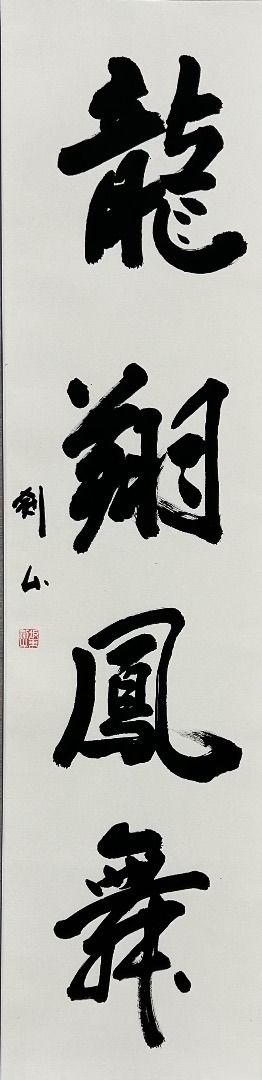 龍翔鳳舞
劍山